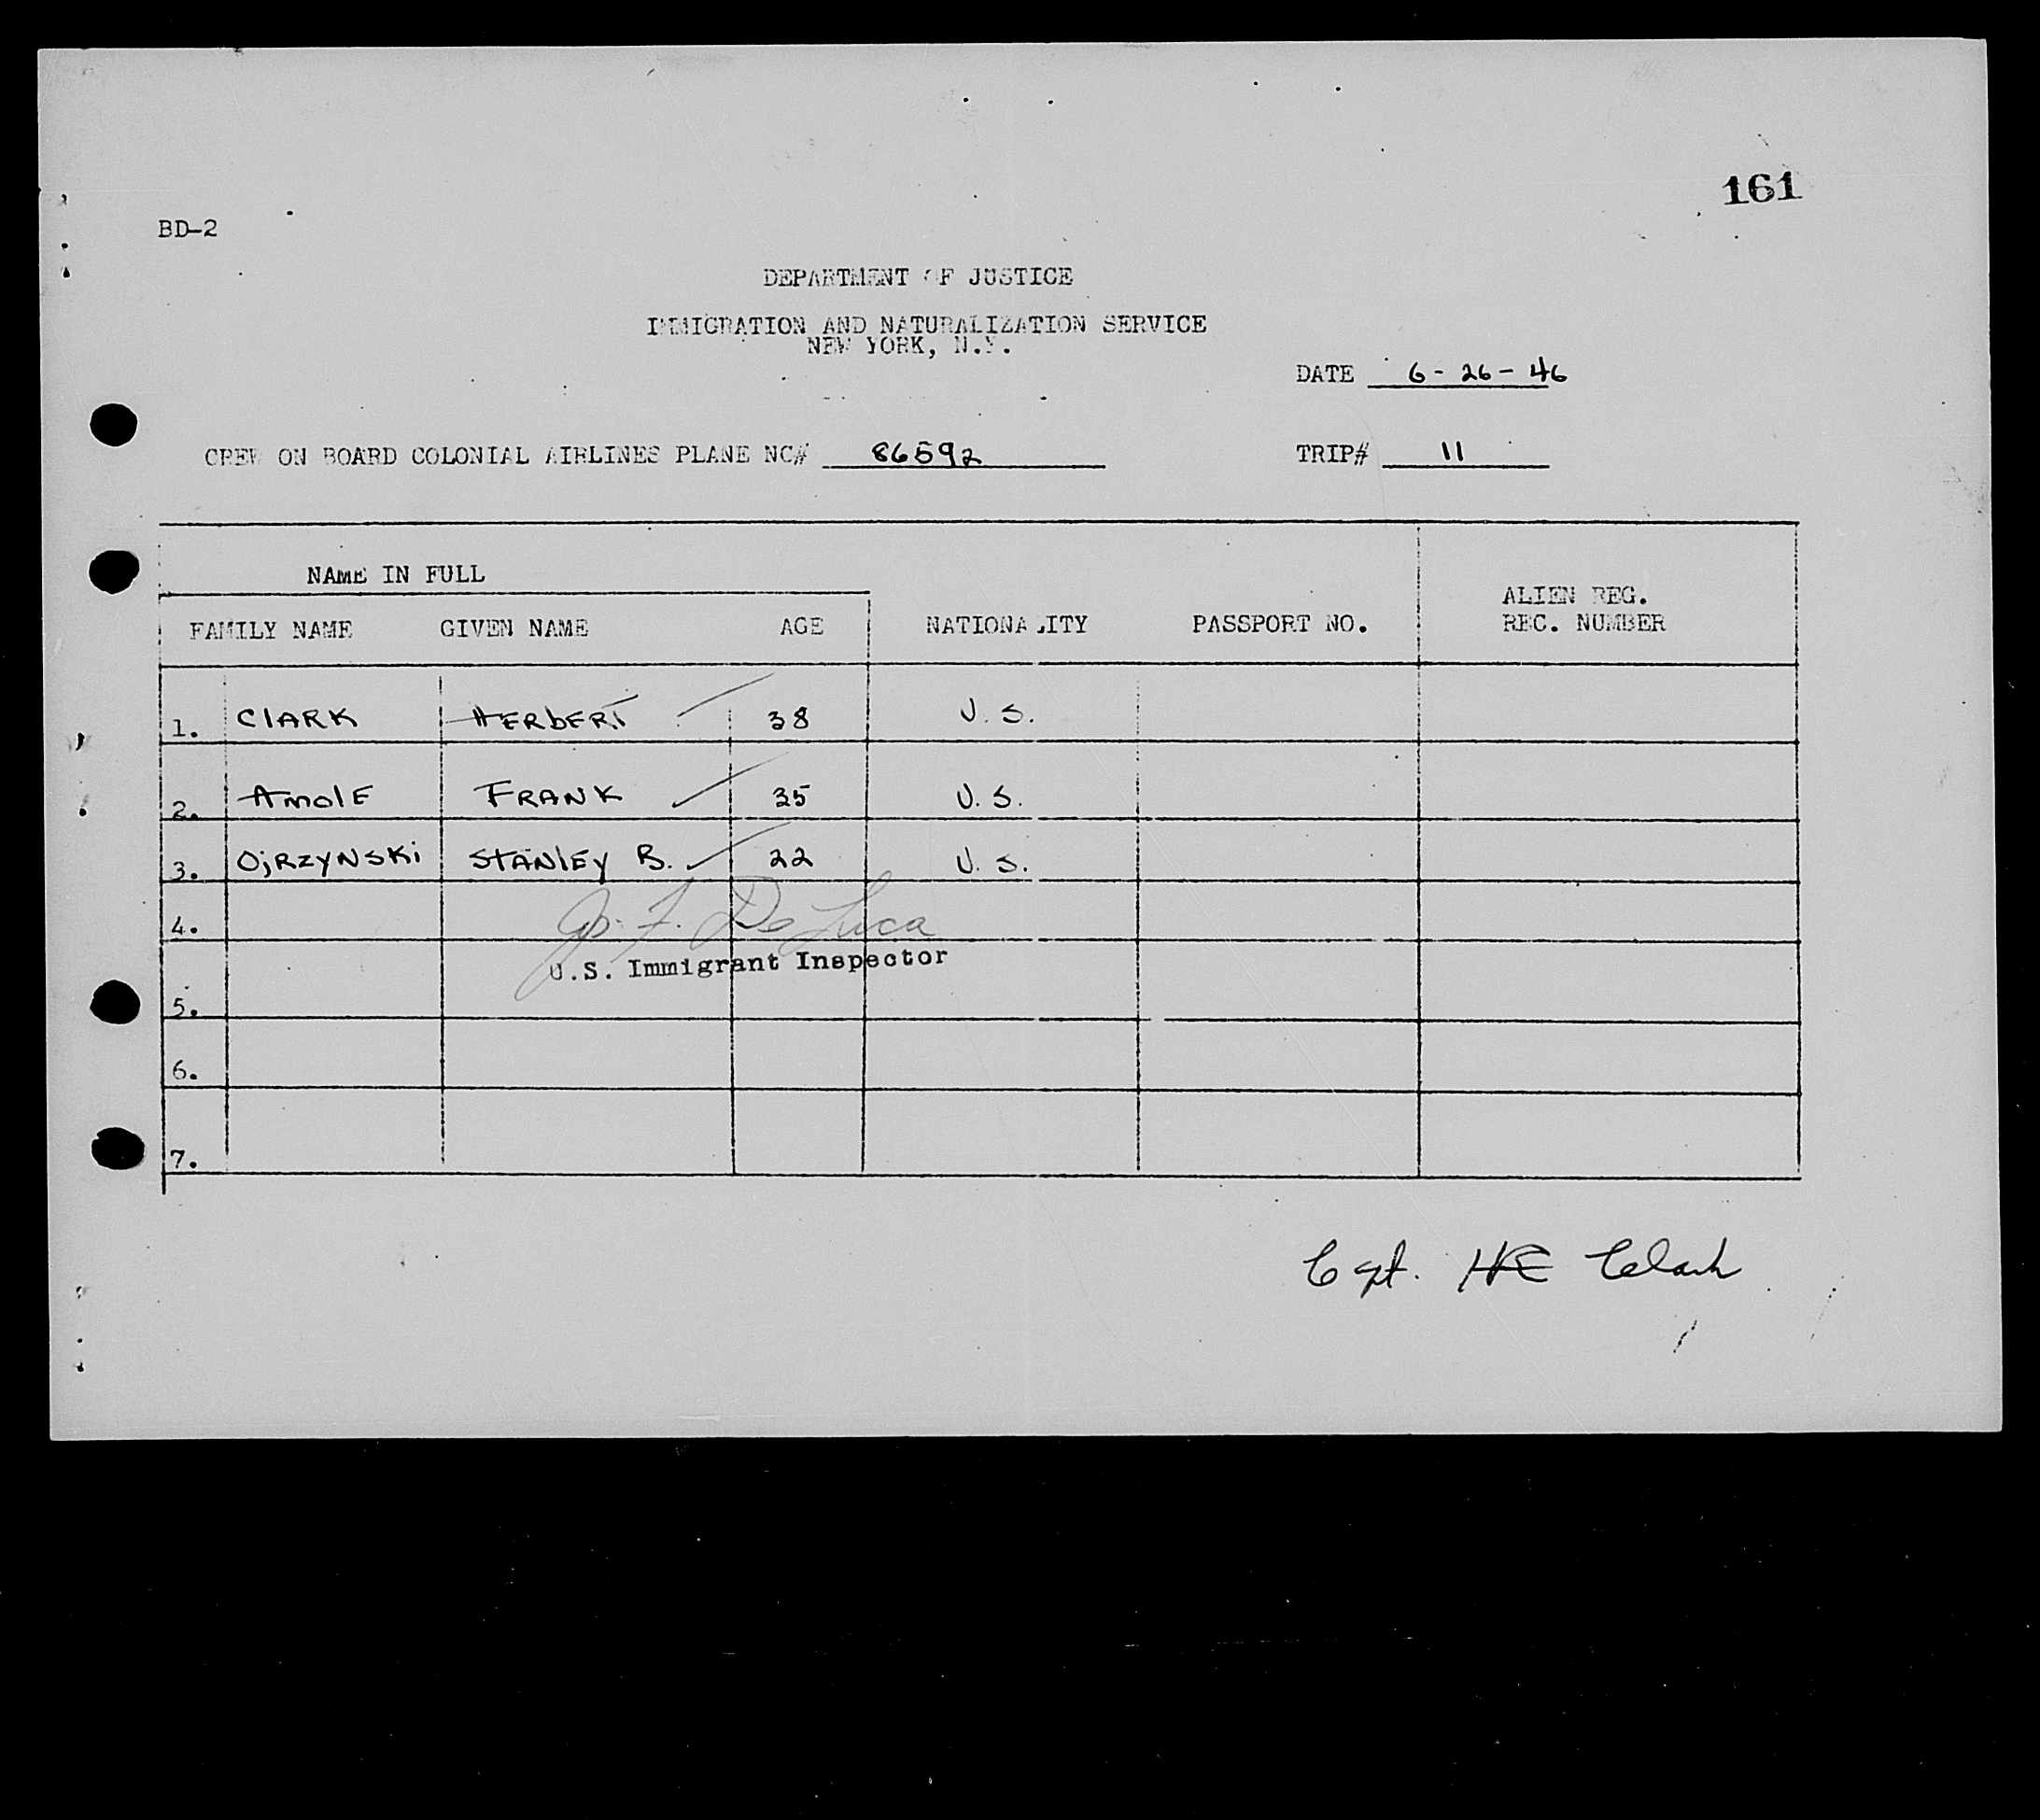 161
BD-2
DEPARTMENT OF JUSTICE
IMMIGRATION AND NATURALIZATION SERVICE
NEW YORK, N.Y.
DATE 6-26-46
CREW ON BOARD COLONIAL AIRLINES PLANE NC# 86592 TRIP# 11
NAME IN FULL
FAMILY NAME GIVEN NAME AGE NATIONALITY PASSPORT NO. ALIEN REG. REC. NUMBER
1. ClARK HERbERT 38 U.S.
2. AmolE FRANK 35 U.S.
3. OjRZyNSKi STANlEy B. 22 U.S.
4. De Luca
U.S. Immigrant Inspector
5.
6.
7.
Cpt. HE Clark